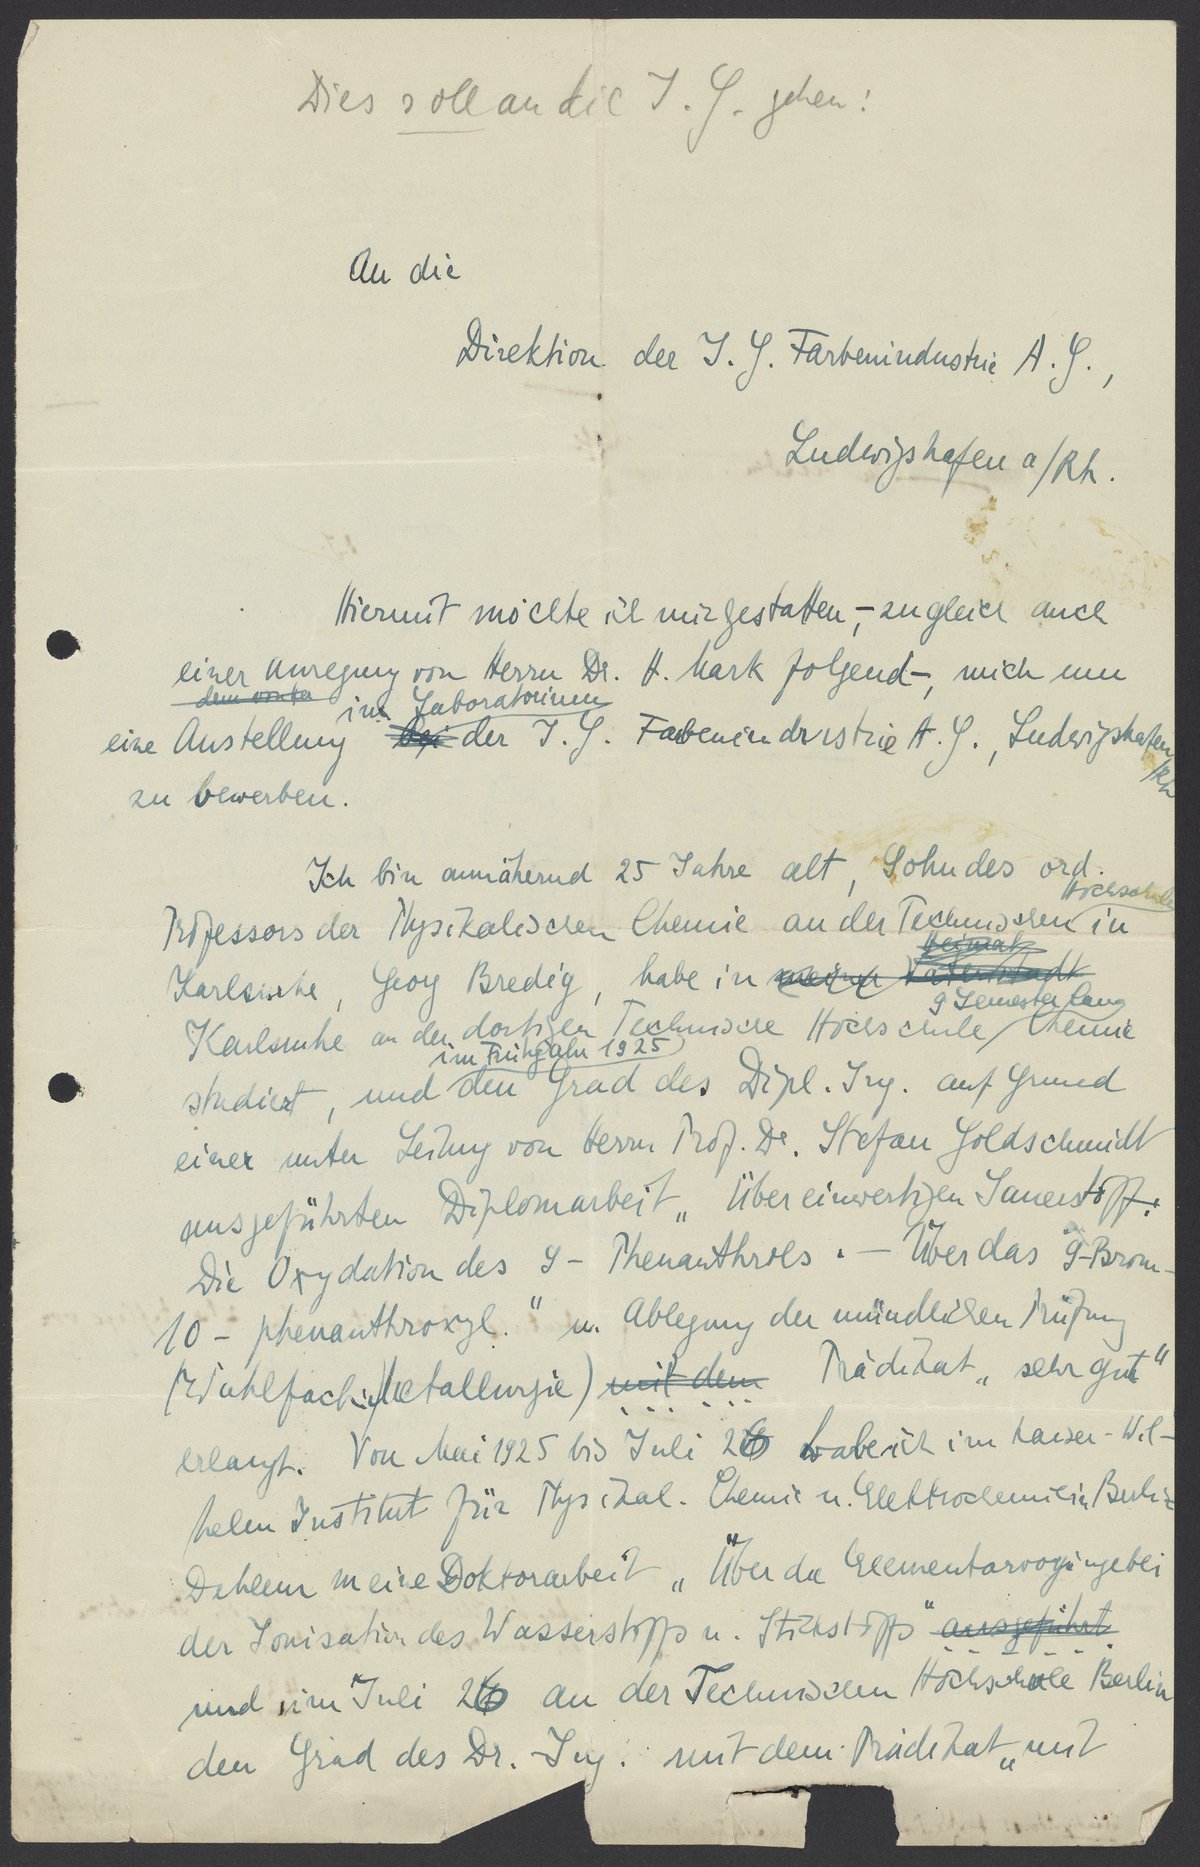 Dies soll an die I. G. gehen!
An die
Direktion der I. G. Farbenindustrie A. G.,
Ludwigshafen a/Rh.
Hiermit möchte ich mir gestatten, – zugleich auch
einer Anregung von Herrn Dr. H. Mark folgend –, mich um
im Laboratorium
eine Anstellung bei der I. G. Farbenindustrie A. G., Ludwigshafen
/Rh
zu bewerben.
Ich bin annähernd 25 Jahre alt, Sohn des ord.
Hochschule
Professors der Physikalischen Chemie an der Technischen in
Heimat
Karlsruhe, Georg Bredig, habe in meiner Vaterstadt
9 Semester lang
Karlsruhe an der dortigen Technische Hochschule Chemie
im Frühjahr 1925
studiert, und den Grad des Dipl. Ing. auf Grund
einer unter Leitung von Herrn Prof. Dr. Stefan Goldschmidt
ausgeführten Diplomarbeit „Über einwertigen Sauerstoff.
Die Oxydation des 9 - Phenanthrols. — Über das 9-Brom-
10 - phenanthroxyl." u. Ablegung der mündlichen Prüfung
(Wahlfach: Metallurgie) mit dem Prädikat „sehr gut"
erlangt. Von Mai 1925 bis Juli 26 habe ich im Kaiser-Wil-
helm Institut für Physikal. Chemie u. Elektrochemie in Berlin
Dahlem meine Doktorarbeit „Über die Elementarvorgänge bei
der Ionisation des Wasserstoffs u. Stickstoffs" ausgeführt
und im Juli 26 an der Technischen Hochschule Berlin
den Grad des Dr. - Ing. mit dem Prädikat „mit